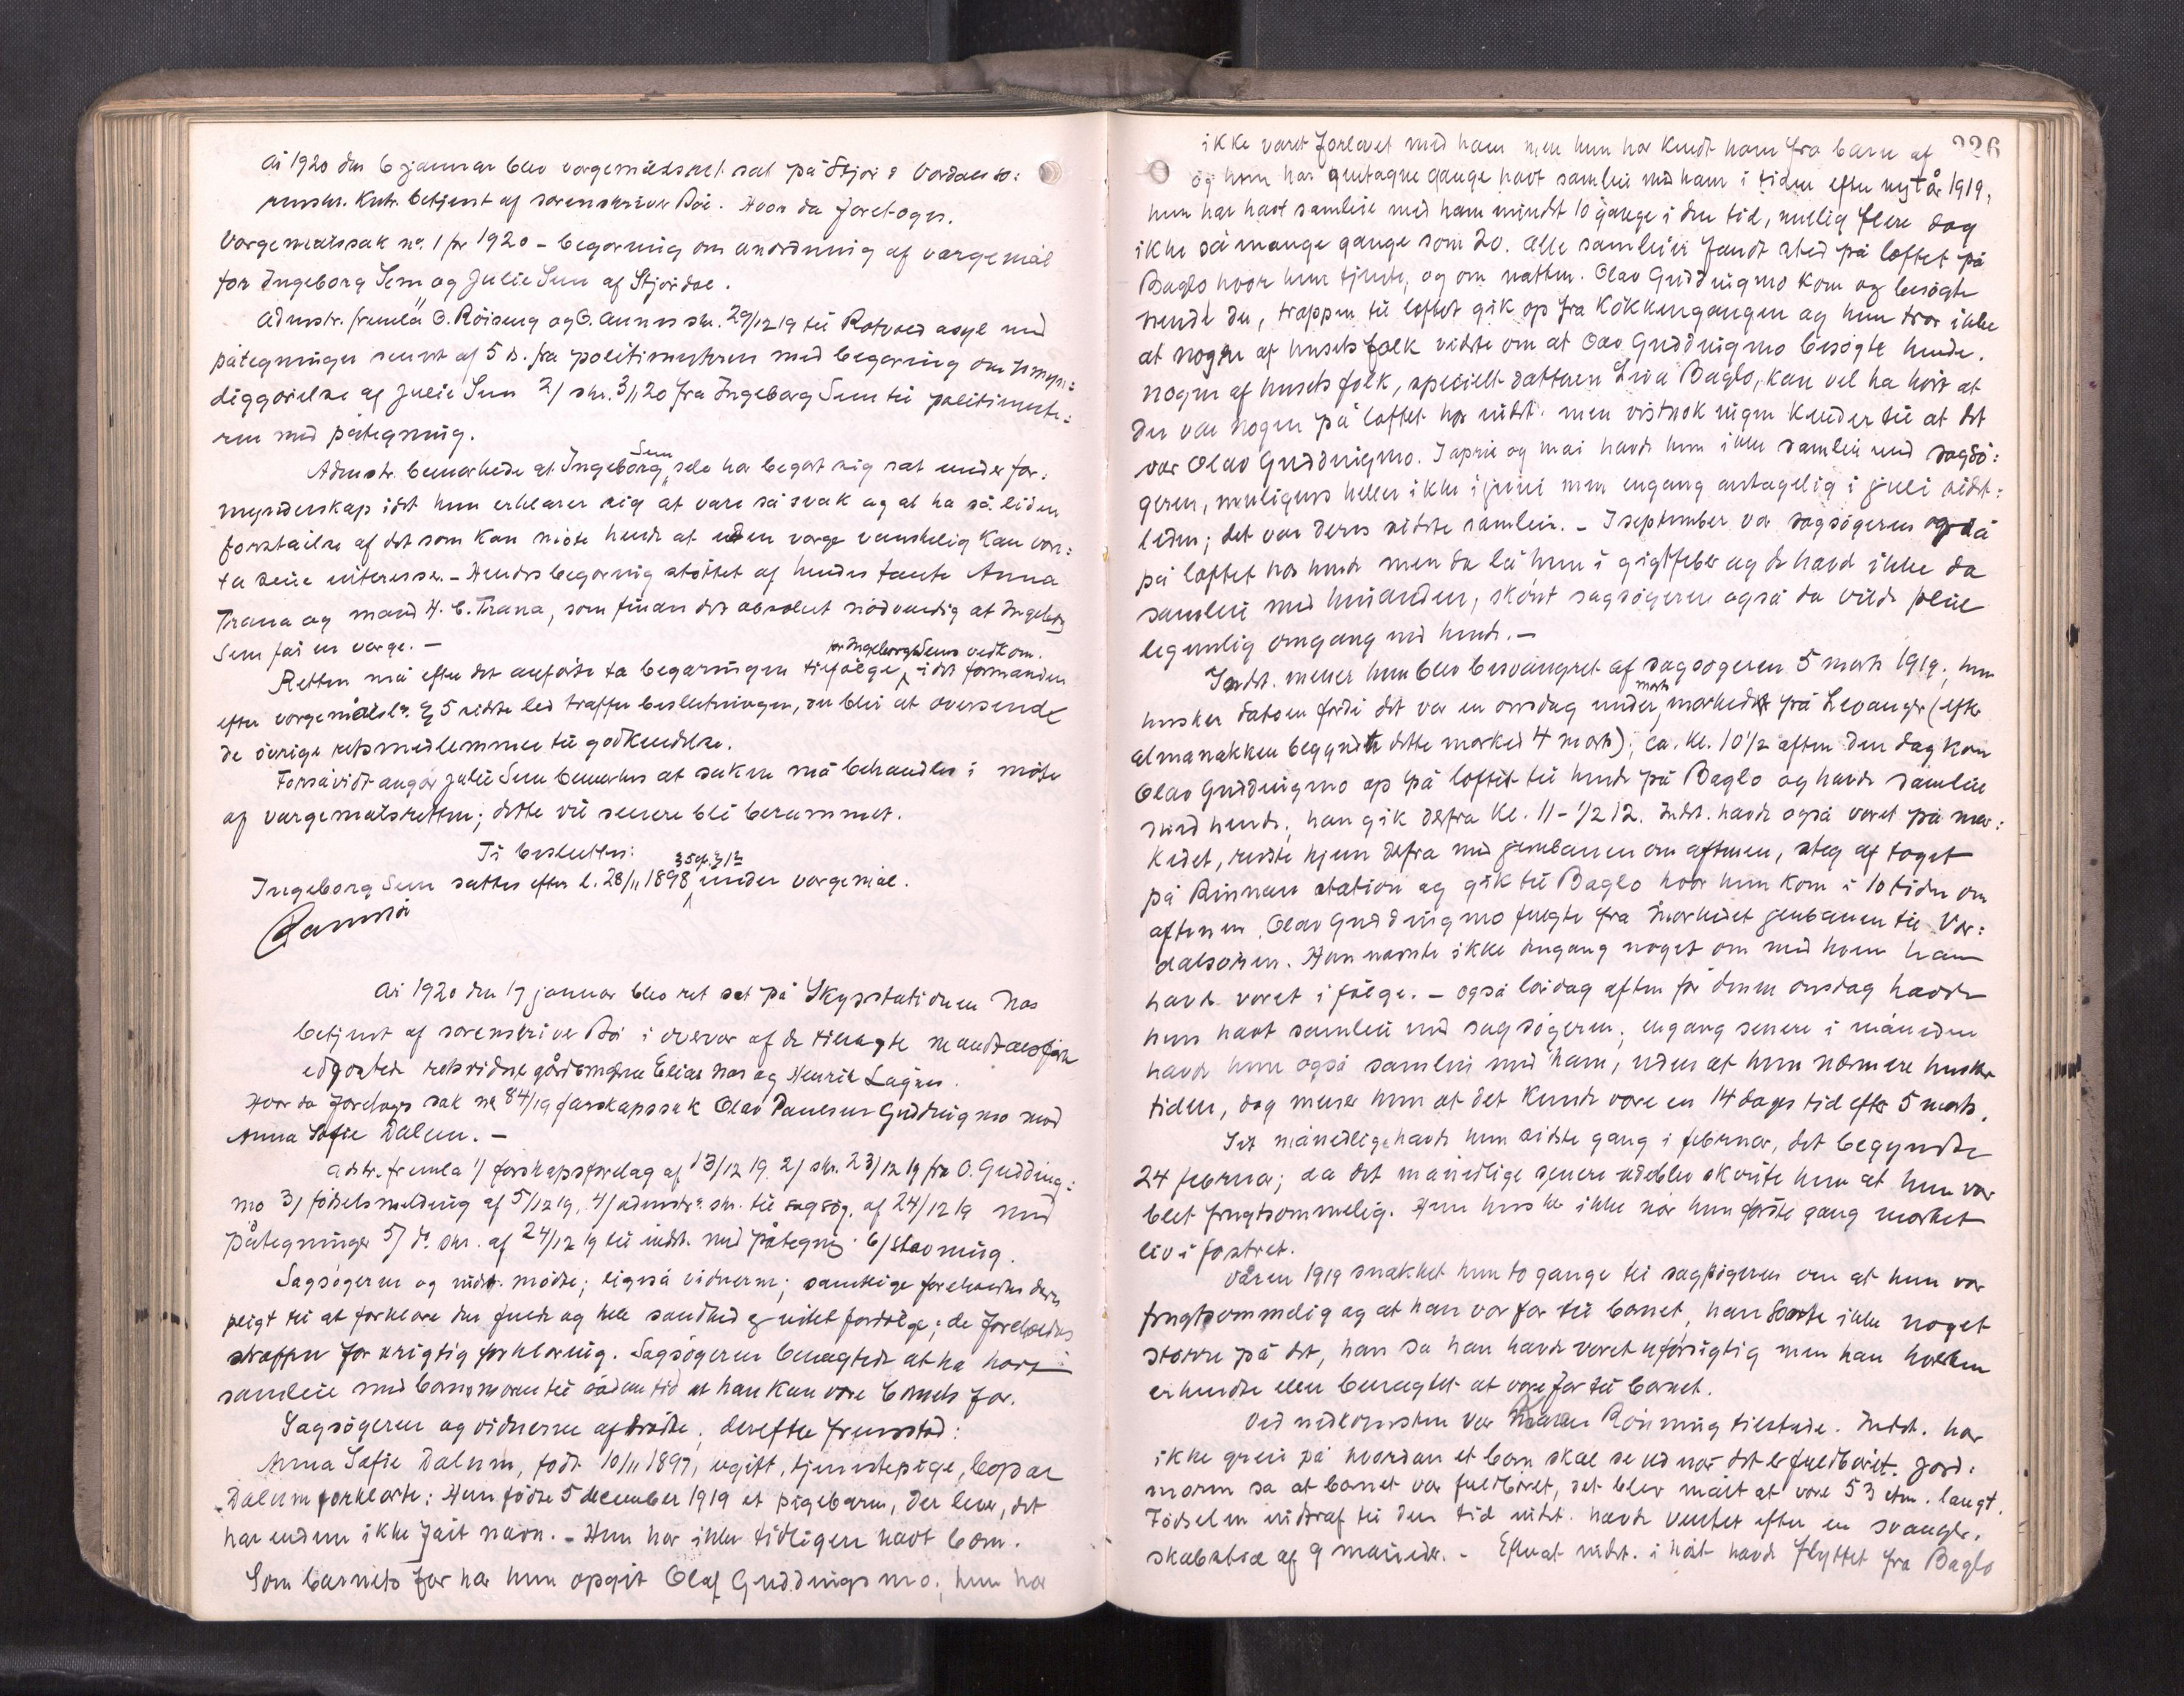 År 1920 den 6 januar blev vergemålsret sat på Stjør & Værdals so:
renskr. kntr. betjent af sorenskriver Röe. Hvor da foretoges.
Vergemålssak no. 1 for 1920 - begjæring om anordning af vergemål
for Ingeborg Sem og Julie Sem af Stjørdal.
Admstr. fremla 1) O. Röiseng og O. Aunes skr. 29/12 19 til Rotvold asyl med
påtegninger senest af 5 ds. fra politimesteren med begjæring om umyn:
diggjørelse af Julie Sem 2/ skr. 3/1 20 fra Ingeborg Sem til politimeste:
ren med påtegning.
Admstr. bemerkede at Ingeborg Sem selv har begjært sig sat under for:
mynderskap idet hun erklærer sig at være så svak og at ha så liden
forståelse af det som kan møte hende at uden verge vanskelig kan vare:
ta sine interesser. - Hendes begjæring støttet af hendes tante Anna
Trana og mand H. C. Trana, som finder det absolut nødvendig at Ingeborg
Sem får en verge. -
Retten må efter det anførte ta begjæringen tilfølge for Ingeborg Sems vedkom. idet formanden
efter vergemålsl. § 5 sidste led træffer beslutningen, der blir at oversende
de øvrige retsmedlemmer til godkendelse.
Forsåvidt angår Julie Sem bemerkes at saken må behandles i møte
af vergemålsretten; dette vil senere bli berammet.
Ti besluttes:
Ingeborg Sem sættes efter l. 28/11 1898 § 5 cfr. § 1 under vergemål.

År 1920 den 17 januar blev ret sat på Skysstationen Nos
betjent af sorenskriver Röe i overvær af de tilsagte mandtalsførte
edfæstede retsvidner gårdsmænd Elias Nos og Henrik Lagnes.
Hvor da foretoges sak no 84/19 farskapssak Olav Paulsen Guddingsmo mod
Anna Sofie Dalum. -
Adstr. fremla 1/ farskapsforelæg af 13/12 19 2/ skr. 23/12 19 fra O. Gudding:
mo 3/ fødselsmelding af 5/12 19, 4/ admstrs. skr. til sagsøg. af 24/12 19 med
påtegninger 5/ do. skr. af 24/12 19 til indst. med påtegng. 6/ stevning.
Sagsøgeren og indst. mødte; ligeså vidnerne; samtlige foreholdtes deres
pligt til at forklare den fulde og hele sandhed og intet fordølge; de foreholdtes
straffen for urigtig forklaring. Sagsøgeren benegtede at ha havt
samleie med barnemoren til sådan tid at han kan være barnets far.
Sagsøgeren og vidnerne aftrådte; derefter fremstod:
Anna Sofie Dalum, født 10/11 1897, ugift, tjenestepige, bopæl
Dalum forklarte: Hun fødte 5 december 1919 et pigebarn, der lever, det
har endnu ikke fåt navn. - Hun har ikke tidligere havt barn.
Som barnets far har hun opgit Olaf Guddingsmo; hun har
226
ikke været forlovet med ham men hun har kendt ham fra barn af
og hun har gentagne gange havt samleie med ham i tiden efter nytår 1919;
hun har havt samleie med ham mindst 10 gange i den tid, mulig flere dog
ikke så mange gange som 20. Alle samleier fandt sted på loftet på
Baglo hvor hun tjente, og om natten. Olav Guddingmo kom og besøgte
hende der, trappen til loftet gik op fra kökkengangen og hun tror ikke
at nogen af husets folk vidste om at Olav Guddingmo besøgte hende.
Nogen af husets folk, specielt datteren Liva Baglo, kan vel ha hørt at
der var nogen på loftet hos indst. men vistnok ingen kender til at det
var Olav Guddingmo. I april og mai havde hun ikke samleie med sagsö:
geren, muligens heller ikke i juni men engang antagelig i juli sidst:
leden; det var deres sidste samleie. - I september var sagsøgeren også
på loftet hos hende men da lå hun i gigtfeber og de havde ikke da
samleie med hinanden, skönt sagsøgeren også da vilde pleie
legemlig omgang med hende. -
Indst. mener hun blev besvangret af sagsøgeren 5 mars 1919; hun
husker datoen fordi det var en onsdag under mars markedet på Levanger (efter
almanakken begyndte dette marked 4 mars); ca. kl. 10 1/2 aften den dag kom
Olav Guddingmo op på loftet til hende på Baglo og havde samleie
med hende; han gik derfra kl. 11 - 1/2 12. Indst. havde også været på mar:
kedet, reiste hjem derfra med jernbanen om aftenen, steg af toget
på Rinnan station og gik til Baglo hvor hun kom i 10 tiden om
aftenen. Olav Guddingmo fulgte fra markedet jernbanen til Vær:
dalsøren. Han nævnte ikke dengang noget om med hvem han
havde været i følge. - også lördag aften før denne onsdag havde
hun havt samleie med sagsøgeren; engang senere i måneden
havde hun også samleie med ham, uden at hun nærmere husker
tiden, dog mener hun at det kunde være en 14 dages tid efter 5 mars.
Sit månedlige havde hun sidste gang i februar, det begyndte
24 februar; da det månedlige senere udeblev skönte hun at hun var
blet frugtsommelig. Hun husker ikke når hun første gang merket
liv i fostret.
Våren 1919 snakket hun to gange til sagsøgeren om at hun var
frugtsommelig og at han var far til barnet, han svarte ikke noget
større på det, han sa han havde været uforsigtig men han hverken
erkendte eller benegtet at være far til barnet.
Ved nedkomsten var Maren Röining tilstede. Indst. har
ikke greie på hvordan et barn skal se ud når det er fuldbåret. Jord:
moren sa at barnet var fuldbåret, det blev målt at være 53 ctm. langt.
Fødselen indtraf til den tid indst. havde ventet efter en svanger.
skabstid af 9 måneder. - Efterat indst. i høst havde flyttet fra Baglo